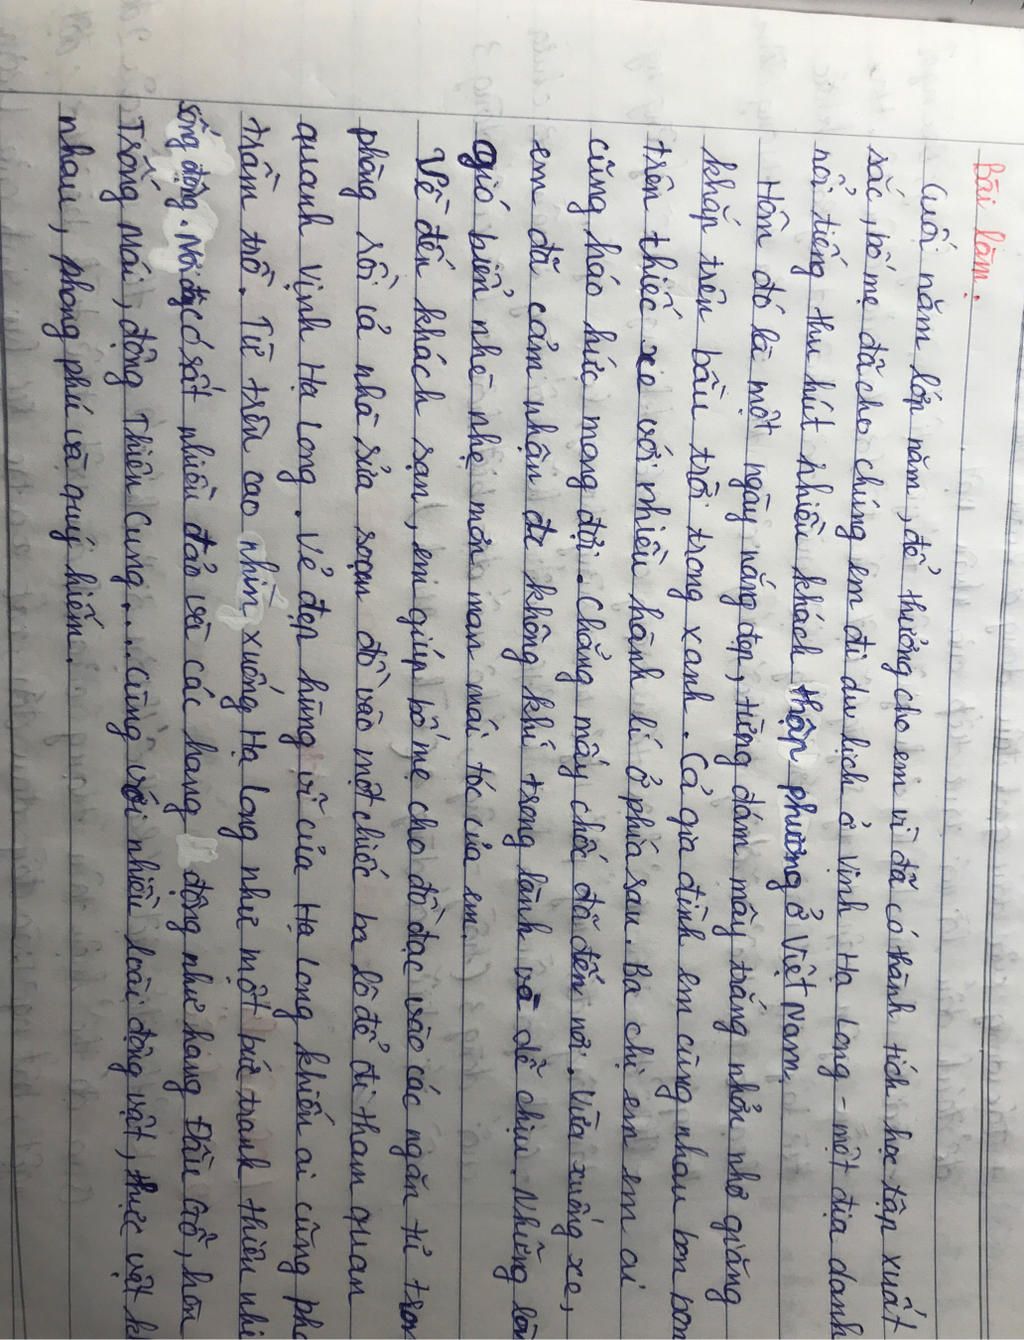 Bài làm.
Cuối năm lớp năm, để thưởng cho em vì đã có thành tích học tập xuất
sắc, bố mẹ đã cho chúng em đi du lịch ở Vịnh Hạ Long - một địa danh
nổi tiếng thu hút nhiều khách thập phương ở Việt Nam.
Hôm đó là một ngày nắng đẹp, từng đám mây trắng nhởn nhơ giăng
khắp trên bầu trời trong xanh. Cả gia đình em cùng nhau bon bon
trên chiếc xe với nhiều hành lí ở phía sau. Ba chị em em ai
cũng háo hức mong đợi. Chẳng mấy chốc đã đến nơi. Vừa xuống xe,
em đã cảm nhận đc không khí trong lành và dễ chịu. Những làn
gió biển nhè nhẹ mơn man mái tóc của em.
Về đến khách sạn, em giúp bố mẹ cho đồ đạc vào các ngăn tủ tron
phòng rồi cả nhà sửa soạn đồ vào một chiếc ba lô để đi tham quan
quanh Vịnh Hạ Long. Vẻ đẹp hùng vĩ của Hạ Long khiến ai cũng phả
trầm trồ. Từ trên cao nhìn xuống Hạ Long như một bức tranh thiên nhi
sống động. Nơi đây có rất nhiều đảo và các hang động như hang Đầu Gỗ, hòn
Trống Mái, động Thiên Cung.... cùng với nhiều loài động vật, thực vật k
nhau, phong phú và quý hiếm.